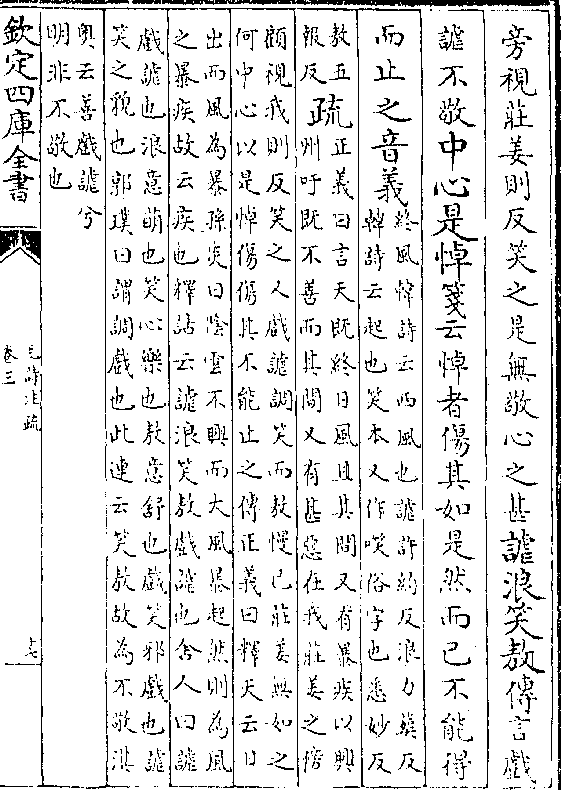 旁視莊姜則反笑之是無敬心之甚謔浪笑敖傳言戲
謔不敬中心是悼箋云悼者傷其如是然而已不能得
而止之音義終風韓詩云西風也謔許約反浪力葬反
韓詩云起也笑本又作唉俗字也悉妙反
敖五
報反疏正義曰言天既終日風且其間又有暴疾以興
州吁既不善而其間又有甚惡在我莊姜之傍
顧視我則反笑之又戲謔調笑而敖慢已莊姜無如之
何中心以是悼傷傷其不能止之傳正義曰釋天云日
出而風為暴孫炎曰陰雲不興而大風暴起然則為風
之暴疾故云疾也釋詁云謔浪笑敖戲謔也舍人曰謔
戲謔也浪意萌也笑心樂也敖意舒也戲笑邪戲也謔
笑之貌也郭璞曰謂調戲也此連云笑敖故為不敬淇
奥云善戲謔兮
明非不敬也
欽定四庫全書
毛詩注疏
卷三
十七